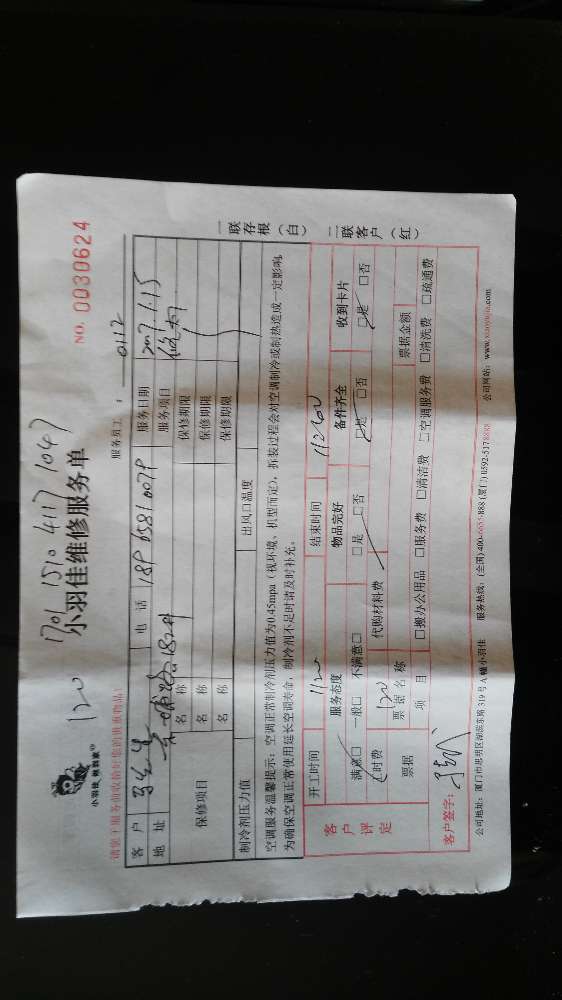 120 1701 1510 4117 1047
小羽佳维修服务单
NO. 0030624
小羽佳 做到家
请您于服务前收拾好您的贵重物品!
服务员工: 0112
客户 电话 189 6581 0079 服务日期 2017.1.15
地址 服务项目
保修项目 名称 保修期限
名称 保修期限
名称 保修期限
制冷剂压力值 出风口温度
空调服务温馨提示:空调正常制冷剂压力值为0.45mpa(视环境、机型而定),拆装过程会对空调制冷或制热造成一定影响,
为确保空调正常使用延长空调寿命,制冷剂不足时请及时补充。
一联存根(白) 二联客户(红)
开工时间 1120 结束时间
客户评定 服务态度 物品完好 备件齐全 收到卡片
满意□ 一般□ 不满意□ □是 □否 □是 □否 □是 □否
工时费 120 代购材料费
票据 票据名称 票据金额
项目 □搬办公用品 □服务费 □清洁费 □空调服务费 □清洗费 □疏通费
客户签字:
公司地址:厦门市思明区湖滨东路319号A幢小羽佳 服务热线:(全国)400-6655-888 (厦门) 0592-5178888 公司网站:www.xiaoyujia.com